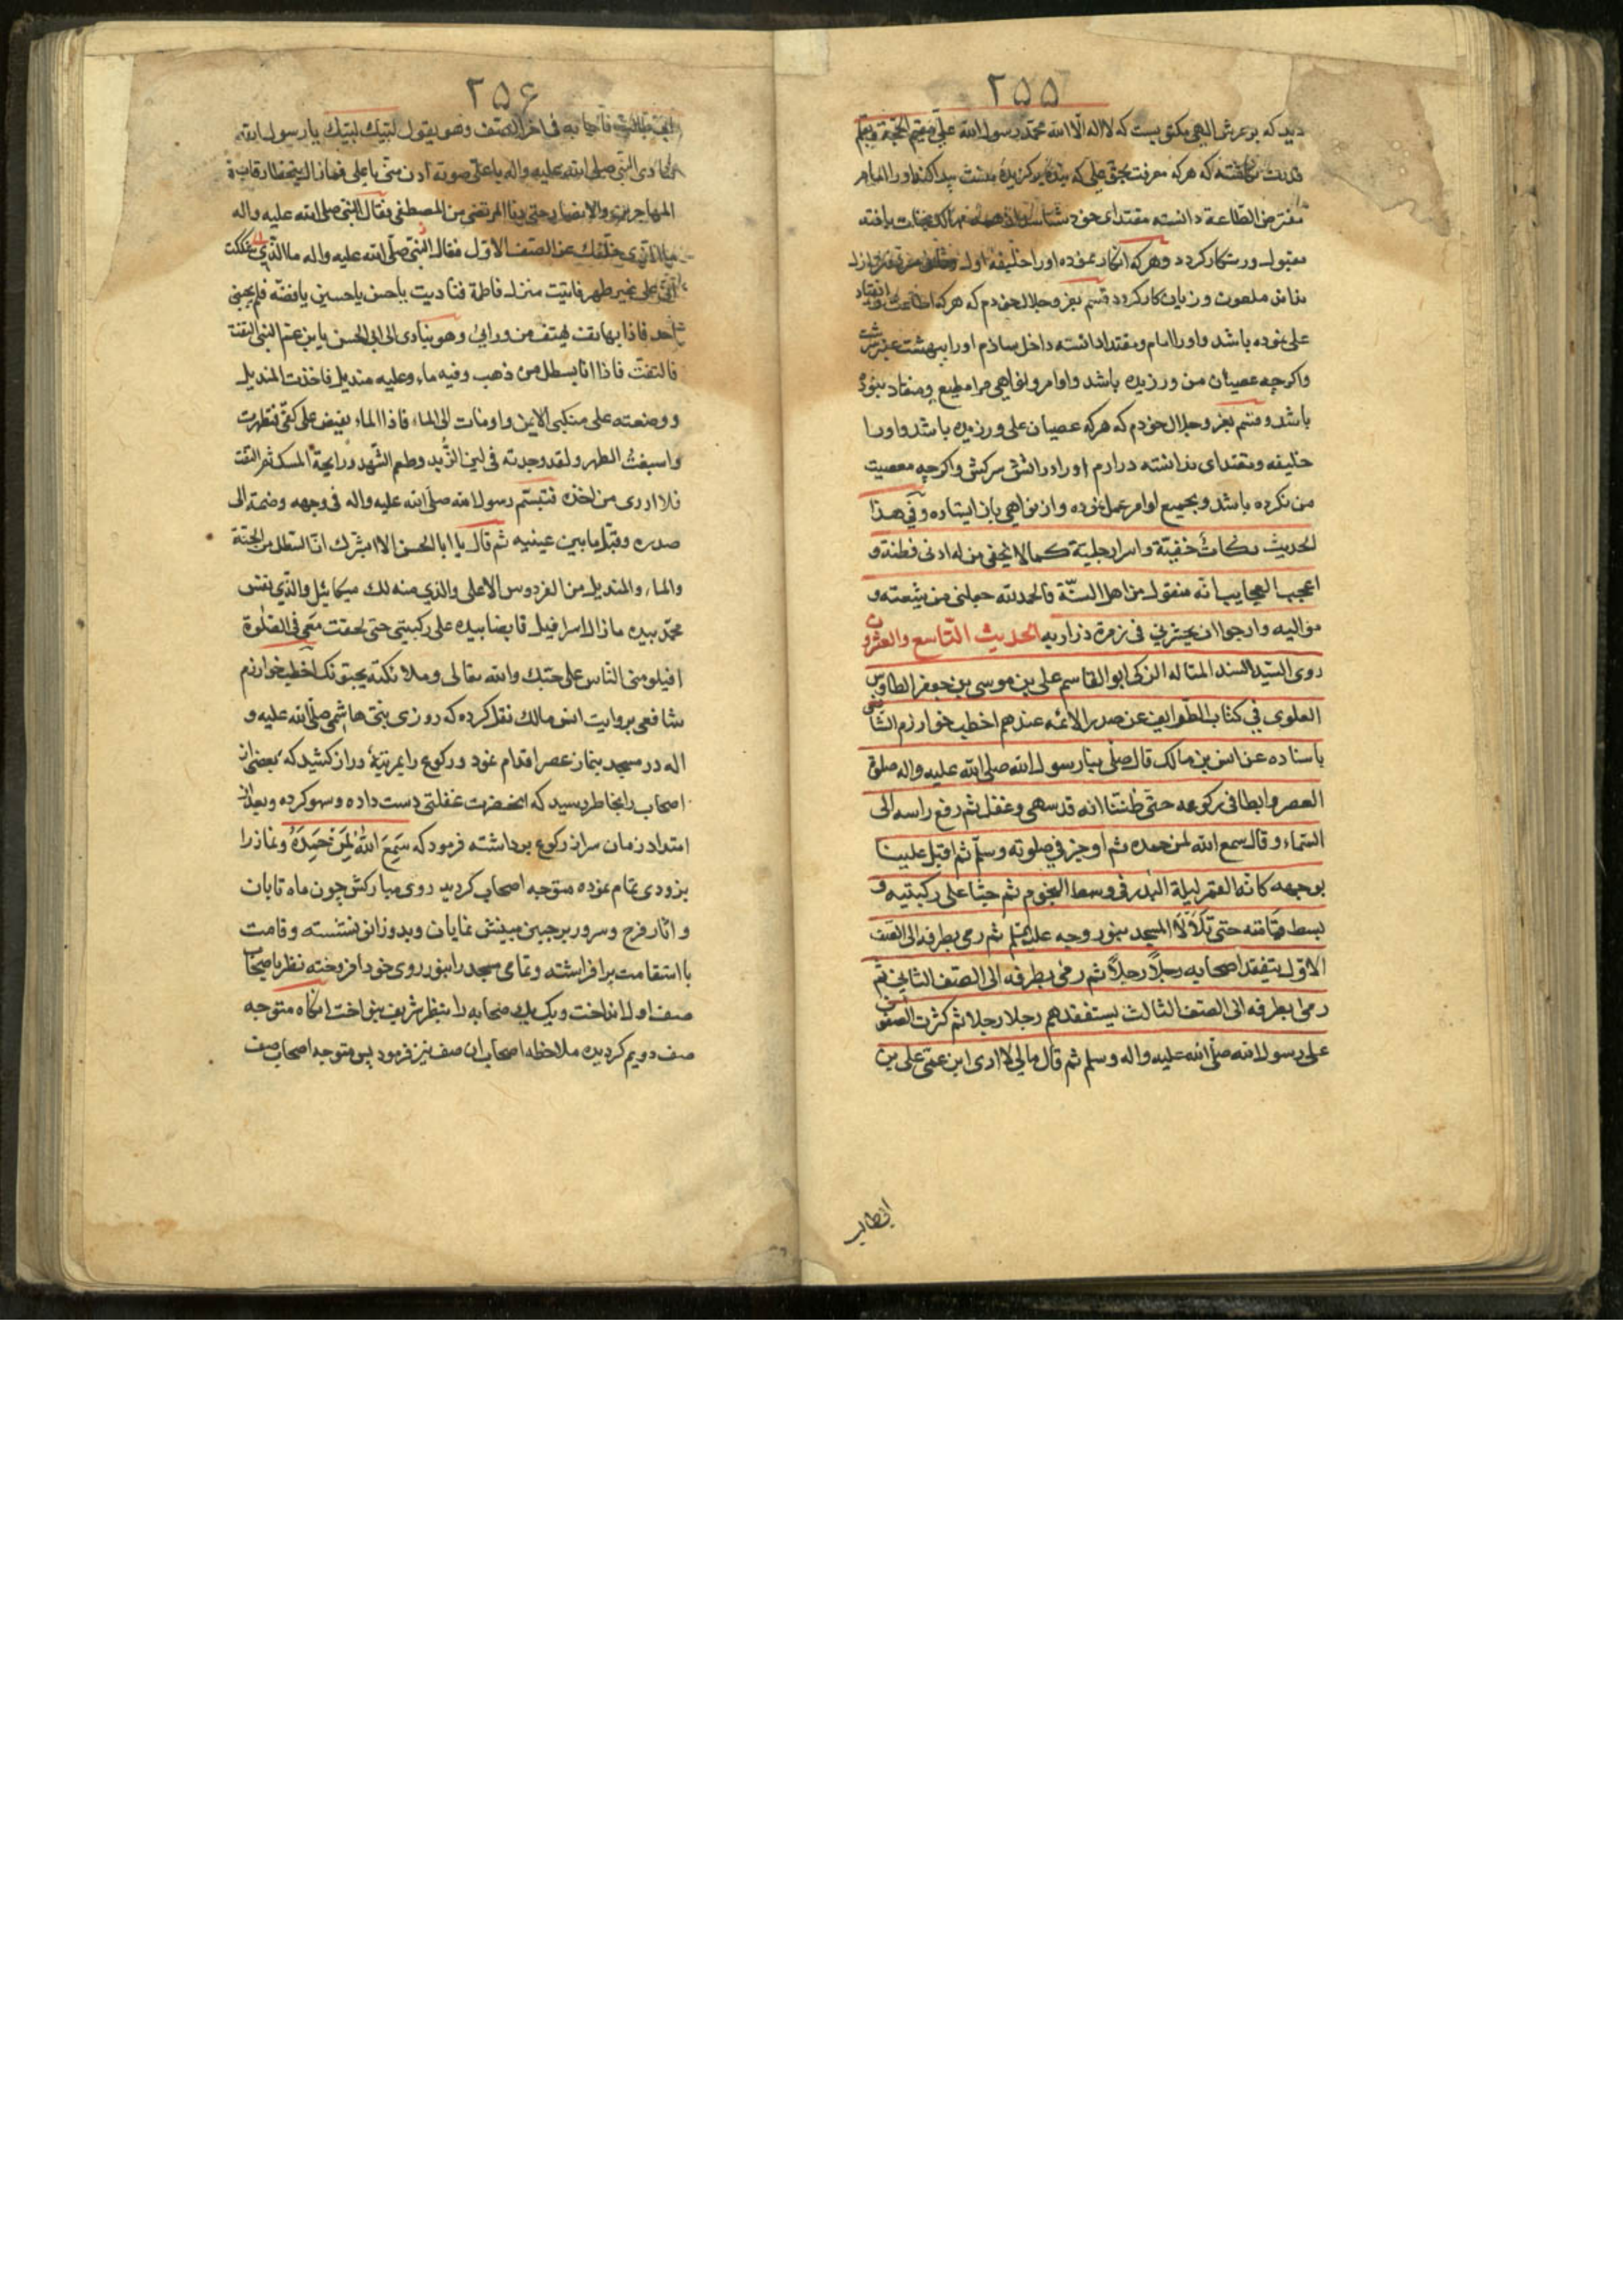 ۲۵۵
دید که بر عرش الهی مکتوبست که لا اله الا الله محمد رسول الله علی مقیم الحجة و بقلم
قدرت نگاشته که هرکه معرفت بحق علی که بنده برکزیده منست پیدا کند و او را امام
مفترض الطاعة دانسته مقتدای خود شناسد از مهالک نجات یافته
مقبول و رستکار کردد و هرکه انکار نموده او را خلیفه اول
نداند ملعون و زیان کار کردد قسم بعز و جلال خودم که هرکه اطاعت و انقیاد
علی نموده باشد و او را امام و مقتدا دانسته داخل سازم او را ببهشت عنبر سرشت
واکرچه عصیان من ورزیده باشد و اوامر و نواهی مرا مطیع و منقاد نبوده
باشد و قسم بعز و جلال خودم که هرکه عصیان علی ورزیده باشد و او را
خلیفه و مقتدای ندانسته درارم او را در اتش سرکش واکرچه معصیت
من نکرده باشد و بجمیع اوامر عمل نموده و از نواهی باز ایستاده و فی هذا
الحدیث نکات خفیّة و اسرار جلیة کما لا یخفی من له ادنی فطنة و
اعجب العجایب انّه منقول من اهل السنّة فالحمد لله جعلنی من شیعته و
موالیه وارجوا ان یحشرنی فی زمرة ذراریه الحدیث التاسع والعشرون
روی السیّد السند المتاله الزکی ابو القاسم علی بن موسی بن جعفر الطاوس
العلوی فی کتاب الطرایف عن صدر الائمه عندهم اخطب خوارزم الشافعی
باسناده عن انس بن مالک قال صلّی بنا رسول الله صلی الله علیه واله صلوة
العصر وابطا فی رکوعه حتّی ظننّا انه قد سهی وغفل ثم رفع راسه الی
السّماء وقال سمع الله لمن حمده ثم اوجز فی صلوته وسلّم ثم اقبل علینا
بوجهه کانّه القمر لیلة البدر فی وسط النجوم ثم جثا علی رکبتیه و
بسط قامته حتی تلألأ المسجد بنور وجهه علیه السلم ثم رمی بطرفه الی الصّف
الاوّل یتفقد اصحابه رجلاً رجلاً ثم رمی بطرفه الی الصّف الثانی ثم
رمی بطرفه الی الصّف الثالث یستفقدهم رجلا رجلا ثم کثرت الصفوف
علی رسول الله صلّی الله علیه واله وسلم ثم قال مالی لا اری ابن عمّی علی بن
ابیطالب
۲۵۶
ابی طالب فاجابه فی اخر الصّف وهو یقول لبّیک لبّیک یا رسول الله
فنادی النبی صلی الله علیه واله باعلی صوته ادن منّی یا علی فمازال یتخطا رقاب
المهاجرین والانصار حتی دنا المرتضی من المصطفی فقال النبی صلی الله علیه واله
ما الّذی خلّفک عن الصّف الاوّل فقال النّبی صلّی الله علیه واله ما الّذی شککت
انّی علی غیر طهر فاتیت منزل فاطمة فنادیت یا حسن یا حسین یا فضّة فلم یجبنی
احد فاذا بهاتف یهتف من ورائی وهو ینادی الی ابی الحسن یابن عم النبی التفت
فالتفتّ فاذا انا بسطل من ذهب وفیه ماء وعلیه مندیل فاخذت المندیل
ووضعته علی منکبی الایمن واومات الی الماء فاذا الماء یفیض علی کفّی فتطهرت
واسبغتُ الطهر ولقد وجدته فی لین الزُبد وطعم الشّهد ورایحة المسک ثم التفت
فلا ادری من اخذه فتبسّم رسول الله صلّی الله علیه واله فی وجهه وضمّه الی
صدره وقبّل ما بین عینیه ثم قال یا ابا الحسن الا ابشّرک انّ السّطل من الجنّة
والماء والمندیل من الفردوس الاعلی والذی منه لک میکائیل والّذی نفس
محمّد بیده مازال اسرافیل قابضا بیده علی رکبتی حتی لحقت معی فی الصّلوة
افیلومنی النّاس علی حبّک والله تعالی وملائکته یحبّونک اخطب خوارزم
شافعی بروایت انس مالک نقل کرده که روزی نبی هاشمی صلّی الله علیه و
اله در مسجد بنماز عصر اقدام نمود و رکوع را بمرتبهٔ دراز کشید که بعضی از
اصحاب را بخاطر رسید که انحضرت غفلتی دست داده و سهو کرده و بعد از
امتداد زمان سر از رکوع برداشته فرمود که سَمِعَ اللهُ لِمَن حَمِدَهُ و نماز را
بزودی تمام نموده متوجه اصحاب کردید روی مبارکش چون ماه تابان
و اثار فرح و سرور بر جبین مبینش نمایان و بدو زانو نشسته و قامت
با استقامت برافراشته و تمامی مسجد را بنور روی خود افروخته نظر باصحاب
صف اول انداخت و یک یک صحابه را بنظر شریف بنواخت انکاه متوجه
صف دویم کردیده ملاحظه اصحاب ان صف نیز فرمود پس متوجه اصحاب صف